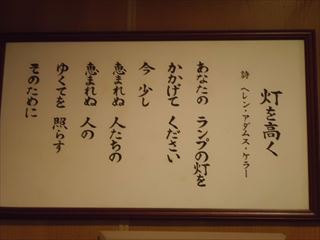 灯を高く
詩 ヘレン・アダムス・ケラー
あなたの ランプの灯を
かかげて ください
今 少し
恵まれぬ 人たちの
恵まれぬ 人の
ゆくてを 照らす
そのために